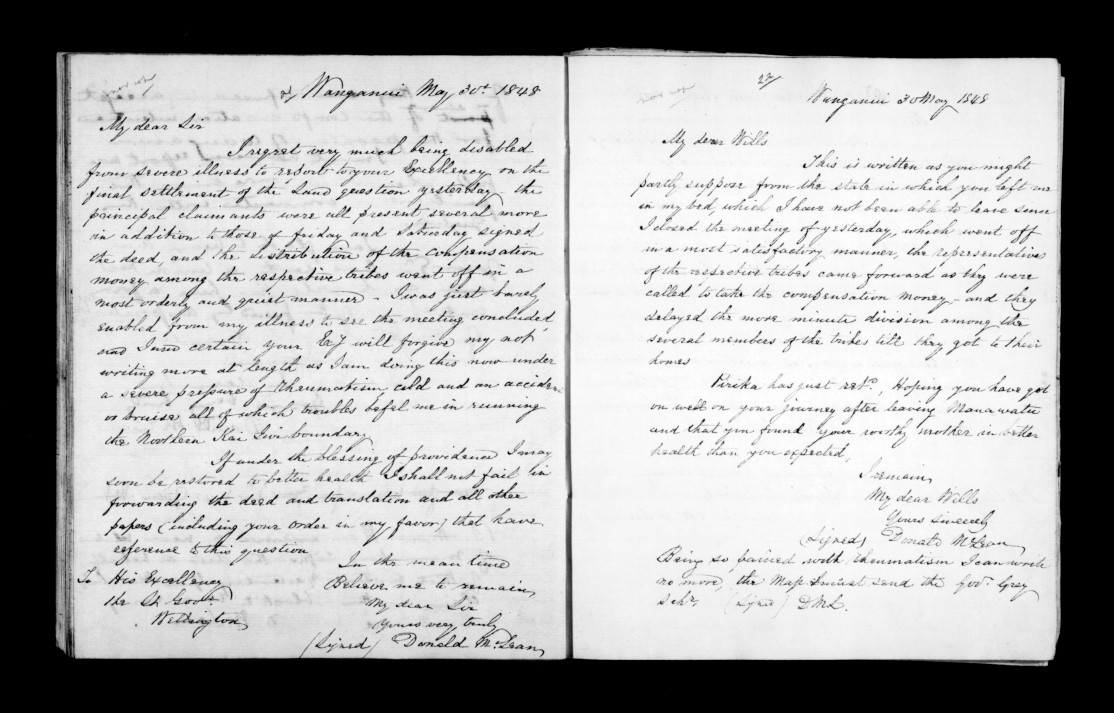 Wanganui May 30th 1848
My dear Sir
I regret very much being disabled
from severe illness to resort to your Excellency on the
final settlement of the Land question yesterday the
principal claimants were all present several more
in addition to those of friday and Saturday signed
the deed, and the distribution of the compensation
money among the respective tribes went off in a
most orderly and quiet manner - I was just barely
enabled from my illness to see the meeting concluded,
and I am certain your Exy will forgive my not
writing more at length as I am doing this now under
a severe pressure of rheumatism, cold and an accident
or bruise all of which troubles befel me in running
the Northern Kai Iwi boundary
If under the blessing of providence I may
soon be restored to better health I shall not fail in
forwarding the deed and translation and all other
papers (including your order in my favor) that have
reference to this question
In the mean time
Believe me to remain,
My dear Sir
Yours very truly
(Signed) Donald McLean
To His Excellency
the Lt Govr
Wellington
27/
Wanganui 30 May 1848
My dear Wills
This is written as you might
partly suppose from the state in which you left me
in my bed, which I have not been able to leave since
I closed the meeting of yesterday, which went off
in a most satisfactory manner, the representative
of the respective tribes came forward as they were
called to take the compensation money - and they
delayed the more minute division among the
several members of the tribes till they got to their
homes
Pirika has just retd, Hoping you have got
on well on your journey after leaving Manawatu
and that you found your worthy mother in better
health than you expected,
I remain,
My dear Wills
Yours Sincerely
(Signed) Donald McLean
Being so pained with rheumatism I can write
no more, the Map I must send the Govr. Grey
(Signed) DMcL.